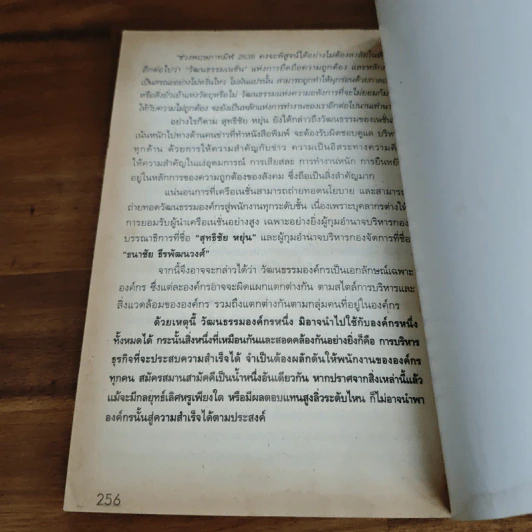 "ช่วงพฤษภาทมิฬ 2535 คงจะพิสูจน์ได้อย่างไม่ต้องสงสัย
อีกต่อไปว่า "วัฒนธรรมเนชั่น" แห่งการยึดถือความถูกต้อง และหลัก
เป็นธรรมอย่างไม่หวั่นไหว ไม่ผันแปรนั้น สามารถถูกทำให้ผุกร่อนด้วย
หรือสิ่งยั่วเย้าแห่งวัตถุหรือไม่ วัฒนธรรมแห่งความอหังการที่จะไม่ยอม
ให้กับความไม่ถูกต้อง จะยังเป็นหลักแห่งการทำงานของเราอีกต่อไปนานเท่า
อย่างไรก็ตาม สุทธิชัย หยุ่น ยังได้กล่าวถึงวัฒนธรรมของเนชั่น
เน้นหนักไปทางด้านคนข่าวที่ทำหนังสือพิมพ์ จะต้องรับผิดชอบดูแล บริหาร
ทุกด้าน ด้วยการให้ความสำคัญกับข่าว ความเป็นอิสระทางความคิด
ให้ความสำคัญในแง่อุดมการณ์ การเสียสละ การทำงานหนัก การยืนหยัด
อยู่ในหลักการของความถูกต้องของสังคม ซึ่งถือเป็นสิ่งสำคัญมาก
แน่นอนการที่เครือเนชั่นสามารถถ่ายทอดนโยบาย และสามารถ
ถ่ายทอดวัฒนธรรมองค์กรสู่พนักงานทุกระดับชั้น เนื่องเพราะบุคลากรต่างให้
การยอมรับผู้นำเครือเนชั่นอย่างสูง เฉพาะอย่างยิ่งผู้กุมอำนาจบริหารกอง
บรรณาธิการที่ชื่อ "สุทธิชัย หยุ่น" และผู้กุมอำนาจบริหารกองจัดการที่ชื่อ
"ธนาชัย ธีรพัฒนวงศ์"
จากนี้จึงอาจจะกล่าวได้ว่า วัฒนธรรมองค์กรเป็นเอกลักษณ์เฉพาะ
องค์กร ซึ่งแต่ละองค์กรอาจจะผิดแผกแตกต่างกัน ตามสไตล์การบริหารและ
สิ่งแวดล้อมขององค์กร รวมถึงแตกต่างกันตามกลุ่มคนที่อยู่ในองค์กร
ด้วยเหตุนี้ วัฒนธรรมองค์กรหนึ่ง มิอาจนำไปใช้กับองค์กรหนึ่ง
ทั้งหมดได้ กระนั้นสิ่งหนึ่งที่เหมือนกันและสอดคล้องกันอย่างยิ่งก็คือ การบริหาร
ธุรกิจที่จะประสบความสำเร็จได้ จำเป็นต้องผลักดันให้พนักงานขององค์กร
ทุกคน สมัครสมานสามัคคีเป็นน้ำหนึ่งอันเดียวกัน หากปราศจากสิ่งเหล่านี้แล้ว
แม้จะมีกลยุทธ์เลิศหรูเพียงใด หรือมีผลตอบแทนสูงลิ่วระดับไหน ก็ไม่อาจนำพา
องค์กรนั้นสู่ความสำเร็จได้ตามประสงค์
256